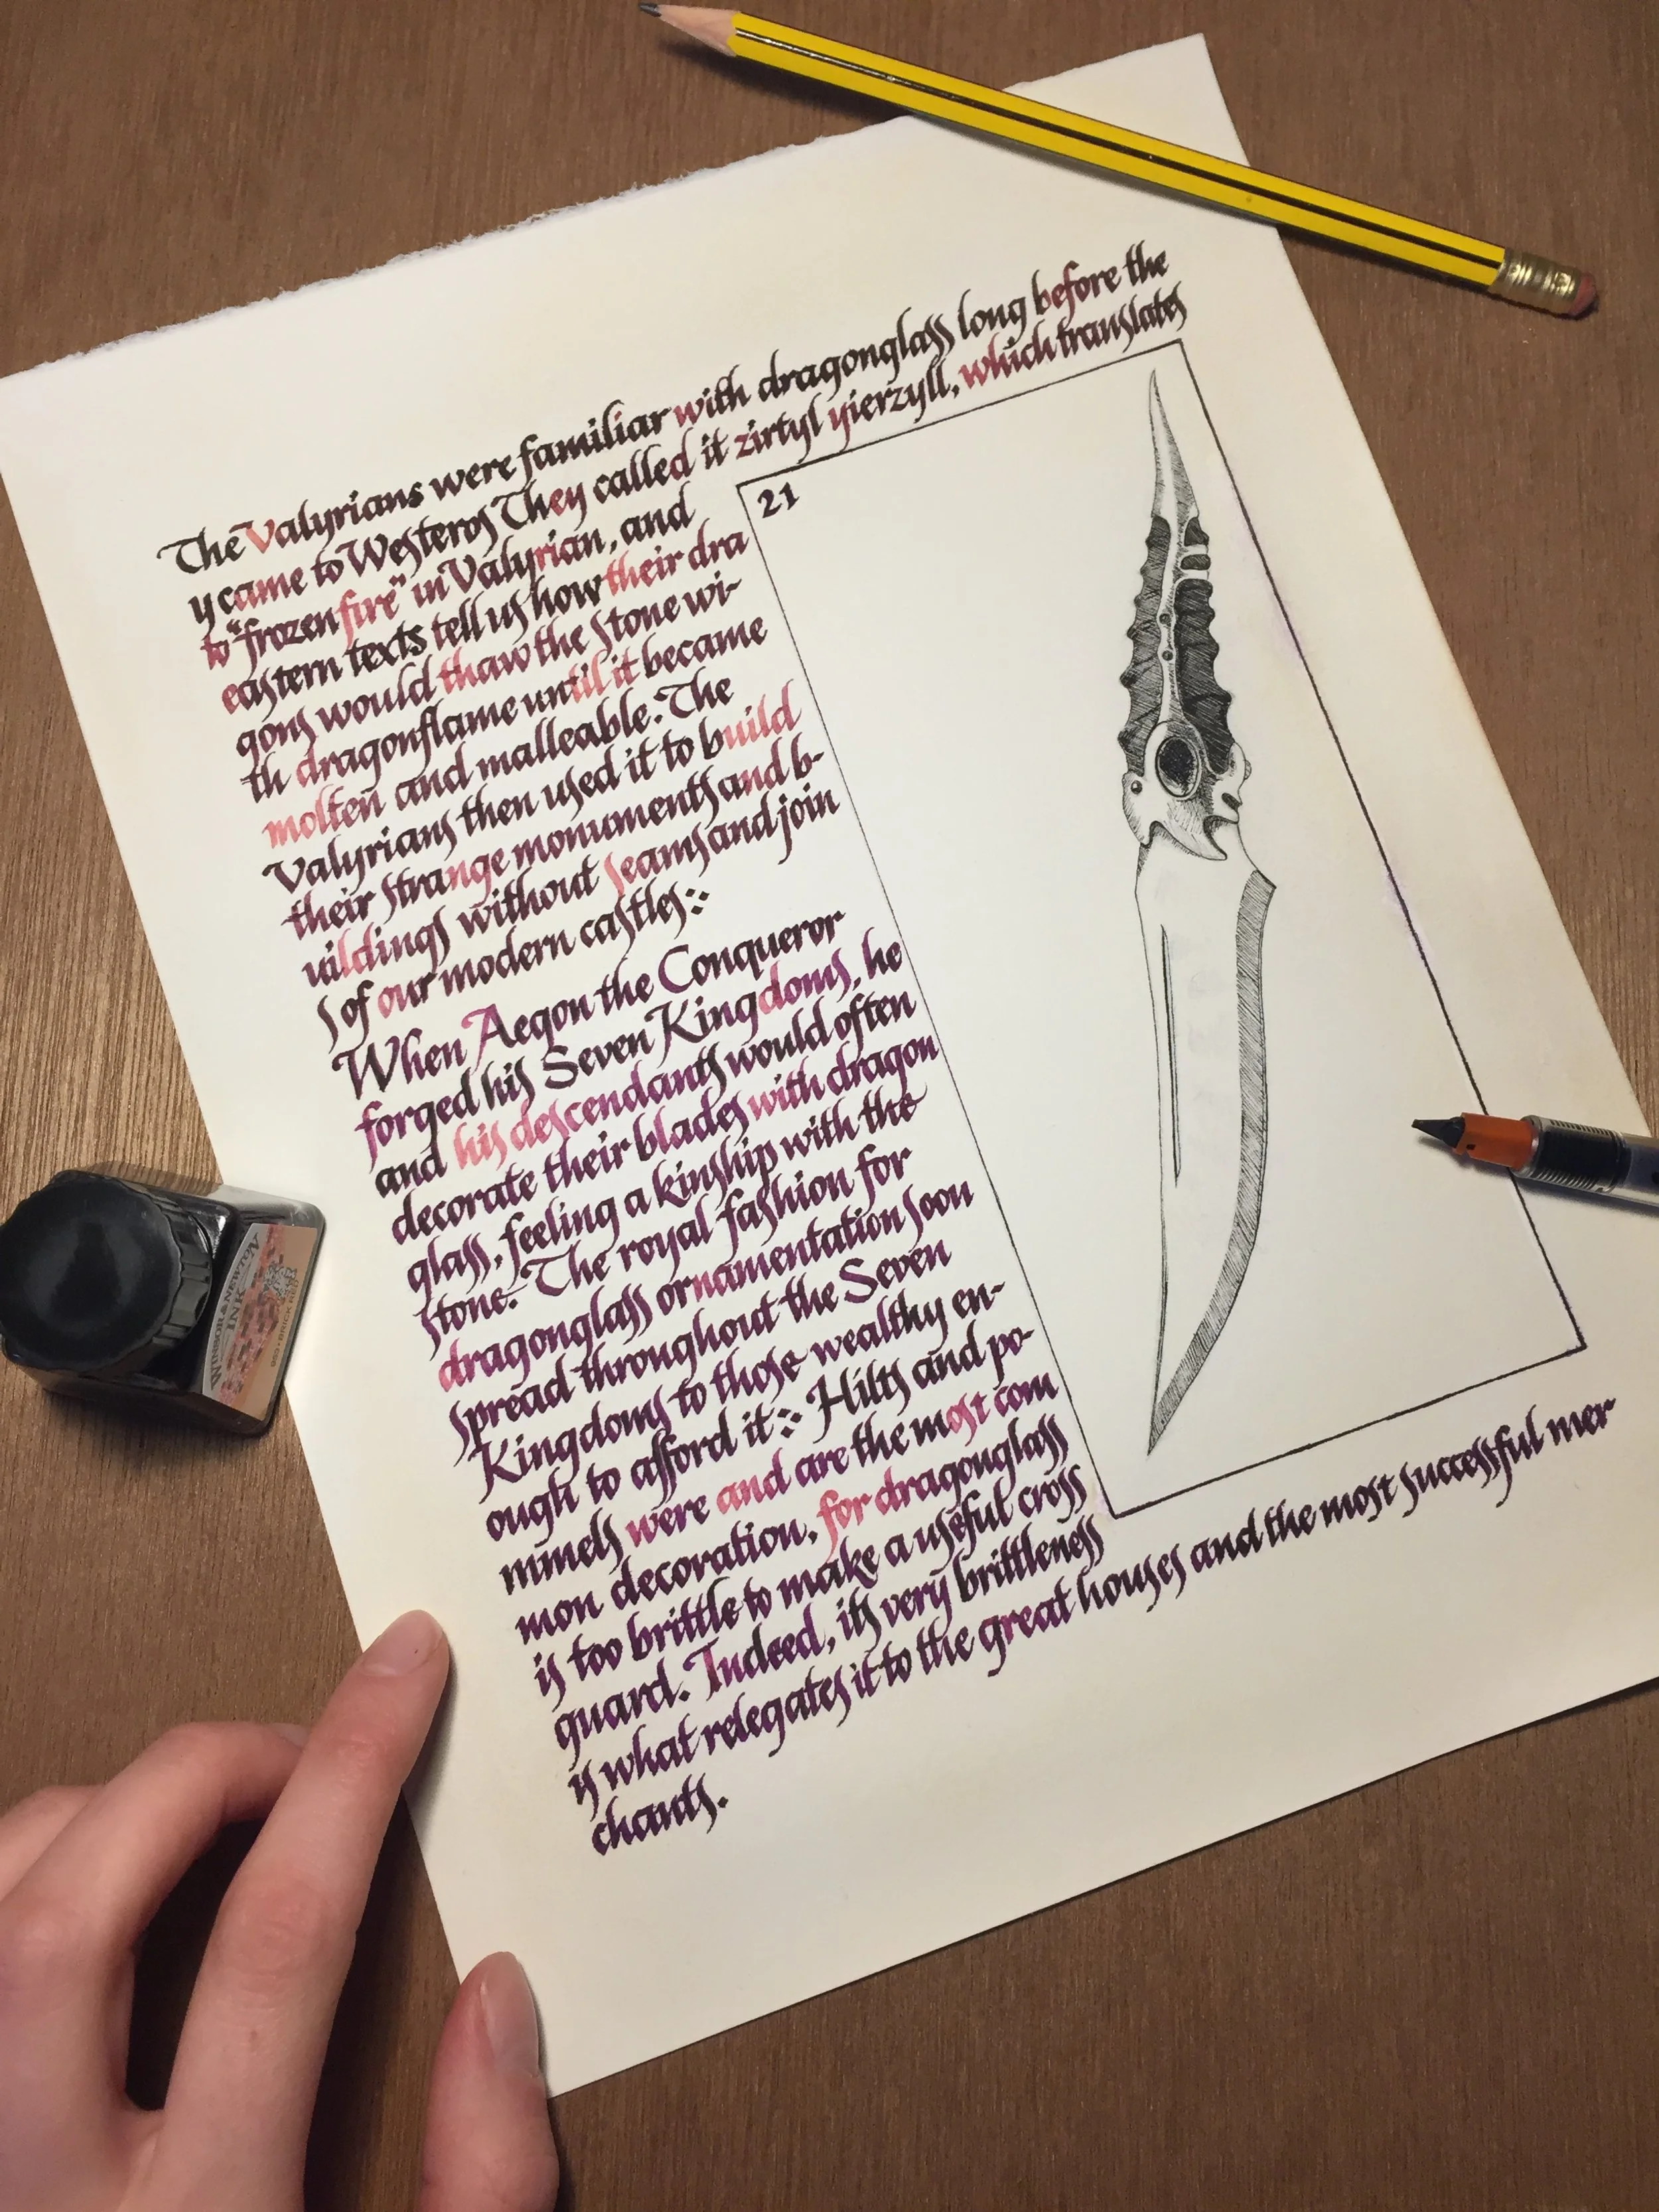 The Valyrians were familiar with dragonglass long before the
y came to Westeros They called it zirtyl yierzyll, which translates
to "frozen fire" in Valyrian, and
eastern texts tell us how their dra
gons would thaw the stone wi-
th dragonflame until it became
molten and malleable. The
Valyrians then used it to build
their strange monuments and b-
uildings without seams and join
s of our modern castles:
When Aegon the Conqueror
forged his Seven Kingdoms, he
and his descendants would often
decorate their blades with dragon
glass, feeling a kinship with the
stone. The royal fashion for
dragonglass ornamentation soon
spread throughout the Seven
Kingdoms to those wealthy en-
ough to afford it: Hilts and po-
mmels were and are the most com
mon decoration, for dragonglass
is too brittle to make a useful cross
guard. Indeed, its very brittleness
is what relegates it to the great houses and the most successful mer
chants.
21
WINSOR & NEWTON
INK